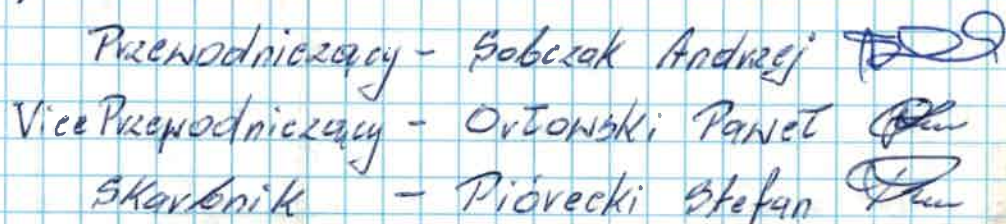 Przewodniczący - Sobczak Andrzej
Vice Przewodniczący - Orłowski Paweł
Skarbnik - Piórecki Stefan